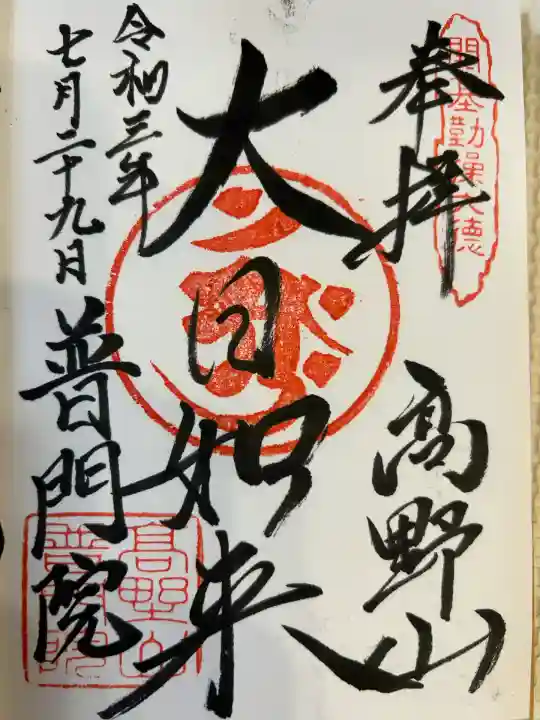 奉拝
高野山
開基勤操大徳
大日如来
令和三年
七月二十九日
普門院
高野山
普門院